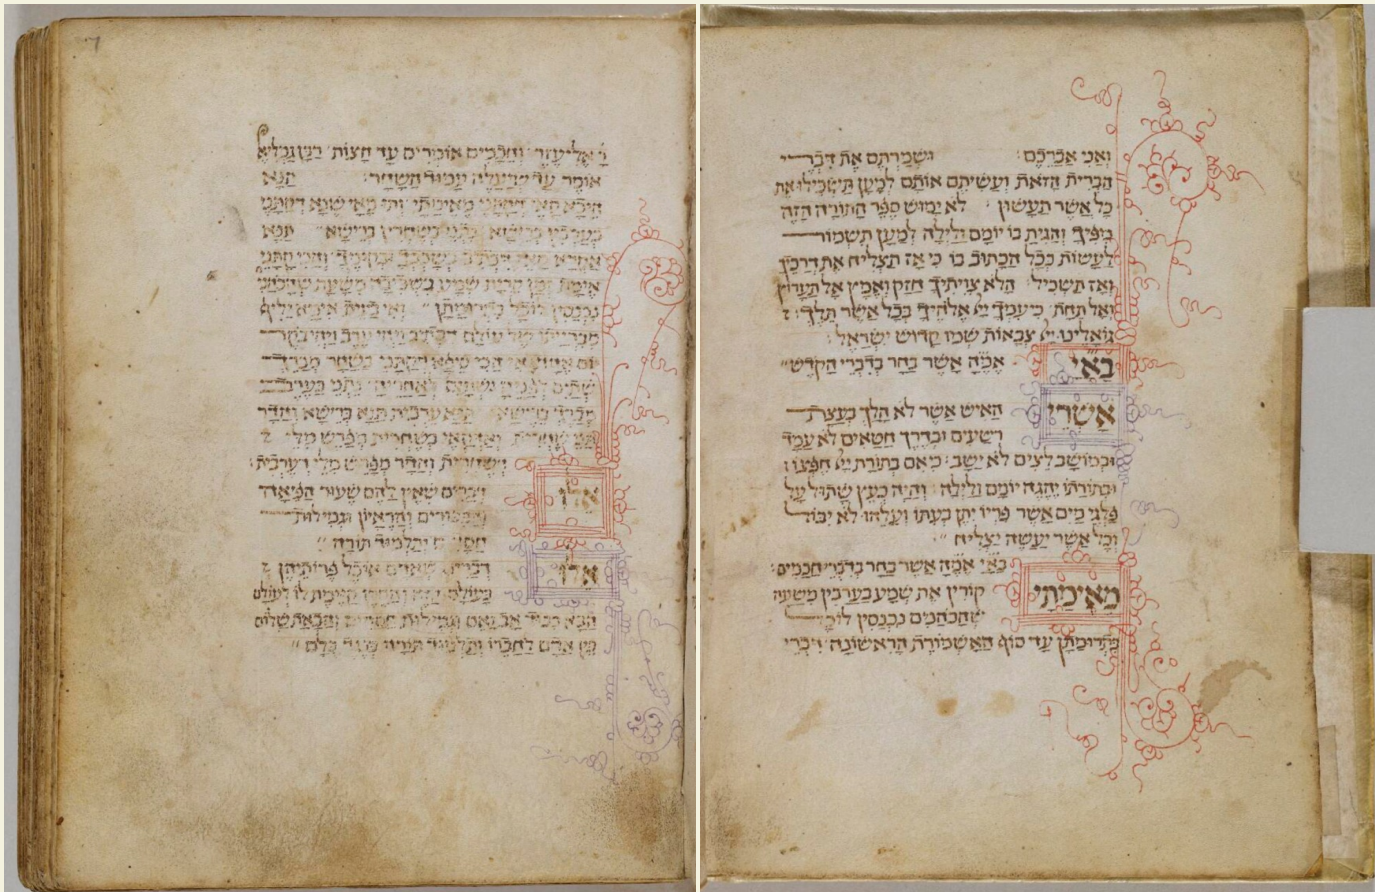 ואני אברכם: ושמרתם את דברי
הברית הזאת ועשיתם אותם למען תשכילו את
כל אשר תעשון: לא ימוש ספר התורה הזה
מפיך והגית בו יומם ולילה למען תשמור
לעשות ככל הכתוב בו כי אז תצליח את דרכך
ואז תשכיל: הלא צויתיך חזק ואמץ אל תערוץ
ואל תחת כי עמך יי אלהיך בכל אשר תלך:
גואלינו יי צבאות שמו קדוש ישראל:
באי אמה אשר בחר בדברי הקדש
אשרי האיש אשר לא הלך בעצת
רשעים ובדרך חטאים לא עמד
ובמושב לצים לא ישב: כי אם בתורת יי חפצו
ובתורתו יהגה יומם ולילה: והיה כעץ שתול על
פלגי מים אשר פריו יתן בעתו ועלהו לא יבול
וכל אשר יעשה יצליח
באי אמה אשר בחר בדברי חכמים:
מאימתי קורין את שמע בערבין משעה
שהכהנים נכנסין לוכל
בתרומתן עד סוף האשמורת הראשונה דברי
ר' אליעזר וחכמים אומרים עד חצות רבן גמליא
אומר עד שיעלה עמוד השחר: תנא
היכא קאי דקתני מאימתי ותו מאי שנא דקתני
בערבין ברישא ניתני בשחרין ברישא תנא
אקרא קאי דכתיב בשכבך ובקומך והכי קתני
אימת זמן קרית שמע בשכיבה משעה שהכהני
נכנסין לוכל בתרומתן ואי בעית אימא יליף
מברייתו של עולם דכתיב ויהי ערב ויהי בקר
יום אחד אי הכי סיפא דקתני בשחר מברך
שתים לפניה ואחת לאחריה ניתני בערב
ברישא תנא ערבית תנא ברישא והדר
תני שחרית ואדקאי בשחרית מפרש מלי
דשחרית והדר מפרש מלי דערבית:
אלו דברים שאין להם שעור הפיאה
והבכורים והראיון וגמילות
חסדים ותלמוד תורה
אלו דברים שאדם אוכל פרותיהן
בעולם הזה והקרן קיימת לו לעולם
הבא כבוד אב ואם וגמילות חסדים והבאת שלום
בין אדם לחברו ותלמוד תורה כנגד כלם